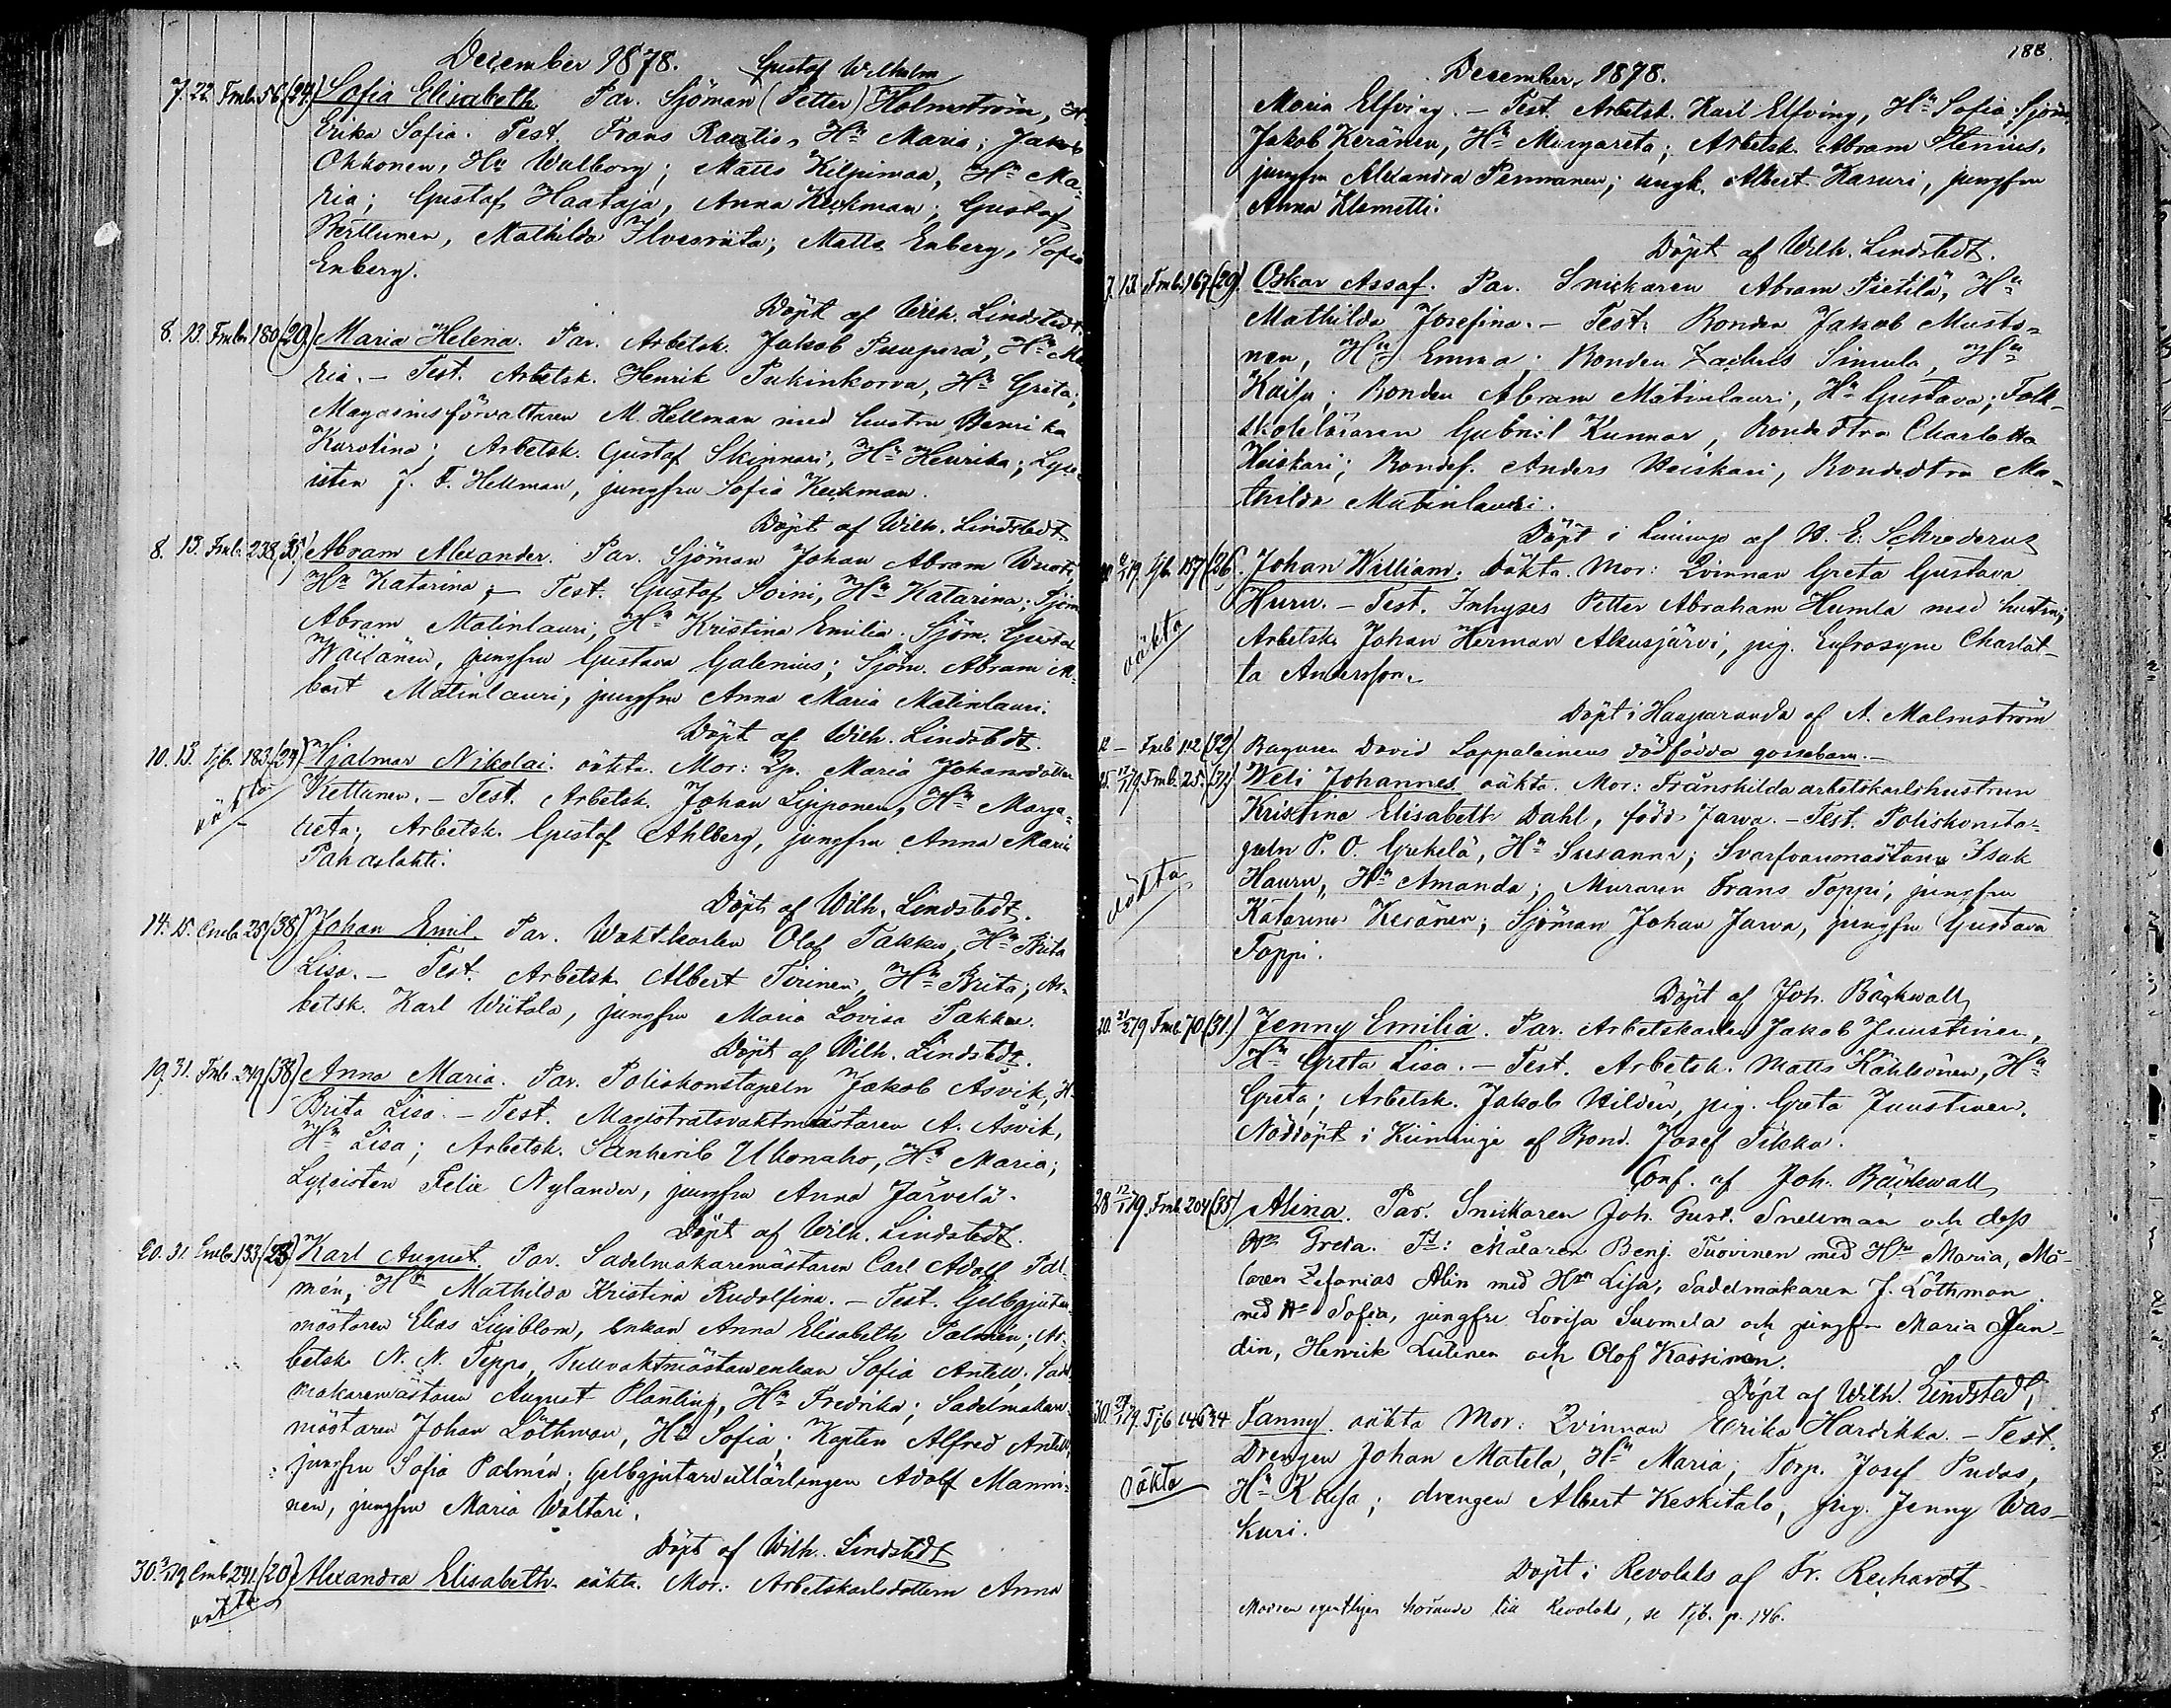 December 1878.
Gustaf Wilhelm
7. 22. Fmb. 56 (24) Sofia Elisabeth. Par. Sjöman (Petter) Holmström, H
Erika Sofia. Test. Frans Rautio, Hn Maria; Jakob
Okkonen, Hn Walborg; Matts Kilpimaa, Hn Ma-
ria; Gustaf Haataja, Anna Keckman; Gustaf
Perttunen, Mathilda Ilvesviita; Matts Enberg, Sofia
Enberg.
Döpt af Wilh. Lindstedt.
8. 13. Fmb. 180 (29.) Maria Helena. Par. Arbetsk. Jakob Puuperä, Hn Ma
ria. - Test. Arbetsk. Henrik Pukinkorva, Hn Greta;
Magasinsförvaltaren M. Hellman med hustru Henrika
Karolina; Arbetsk. Gustaf Skinnari, Hn Henrika; Lyce
isten J. F. Hellman, jungfru Sofia Keckman.
Döpt af Wilh. Lindstedt
8. 13. Fmb. 238, 35. Abram Alexander. Par. Sjöman Johan Abram Wuoti,
Hn Katarina. - Test. Gustaf Soini, Hn Katarina; Sjöm
Abram Matinlauri, Hn Kristina Emilia. Sjöm. Gustaf
Wäisänen, jungfru Gustava Galenius; Sjöm. Abram Al-
bert Matinlauri, jungfru Anna Maria Matinlauri.
Döpt af Wilh. Lindstedt.
10. 13. Tjb. 183 (24) Hjalmar Nikolai. oäkta. Mor: Maria Johansdotter
oäkta
Kettunen. - Test. Arbetsk. Johan Lipponen, Hn Marga-
reta; Arbetsk. Gustaf Åhlberg, jungfru Anna Maria
Pahalahti.
Döpt af Wilh. Lindstedt.
14. 15. Emb. 25 (38) Johan Emil. Par. Waktkarlen Olof Takku, Hn Brita
Lisa. - Test. Arbetsk. Albert Tirinen, Hn Brita; Ar-
betsk. Karl Wiitala, jungfru Maria Lovisa Takku.
Döpt af Wilh. Lindstedt.
19. 31. Fmb. 249 (38) Anna Maria. Par. Poliskonstapeln Jakob Åsvik, H
Brita Lisa. - Test. Magistratsvaktmästaren A. Åsvik,
Hn Lisa; Arbetsk. Sanherib Ukonaho, Hn Maria;
Lyceisten Felix Nylander, jungfru Anna Järvelä.
Döpt af Wilh. Lindstedt.
20. 31. Emb. 133. (28) Karl August. Par. Sadelmakaremästaren Carl Adolf Pal-
mén, Hn Mathilda Kristina Rudolfina. - Test. Gelbgjutar
mästaren Elias Liljeblom, enkan Anna Elisabeth Palmén; Ar-
betsk. N. N. Teppo, Tullvaktmästareenkan Sofia Antell; Sadel
makaremästaren August Planting, Hn Fredrika; Sadelmakare-
mästaren Johan Löthman, Hn Sofia; Kapten Alfred Antell,
jungfru Sofia Palmén; Gelbgjutareutlärlingen Adolf Manni-
nen, jungfru Maria Waltari.
Döpt af Wilh. Lindstedt
30. 3/1 79. Emb. 241. (20) Alexandra Elisabeth. oäkta. Mor: Arbetskarlsdottern Anna
oäkta
188.
December, 1878.
Maria Elfving. - Test. Arbetsk. Karl Elfving, Hn Sofia; Sjöm
Jakob Keränen, Hn Margareta; Arbetsk. Abram Stenius,
jungfru Alexandra Pennanen; ungk. Albert Karuri, jungfru
Anna Klemetti.
Döpt af Wilh. Lindstedt.
7. 13. Fmb. 167 (29). Oskar Assaf. Par. Snickaren Abram Pietilä, Hn
Mathilda Josefina. - Test. Bonden Jakob Musto-
nen, Hn Emma; Bonden Zachris Simula, Hn
Kaisa; Bonden Abram Matinlauri, Hn Gustava; Folk-
skoleläraren Gabriel Kunnar, Bondedtra Charlotta
Heiskari; Bondes. Anders Heiskari, Bondedtra Ma-
thilda Matinlauri.
Döpt i Kiiminge af H. E. Schroderus
Tjb. 157 (26. Johan William. Oäkta. Mor: Qvinnan Greta Gustava
Huru. - Test. Inhyses Petter Abraham Humla med hustru;
oäkta
Arbetsk. Johan Herman Alkusjärvi, pig. Eufrosyne Charlot-
ta Andersson.
Döpt i Haaparanda af A. Malmström
12 - Fmb. 112 (32) Bagaren David Lappalainens dödfödda gossebarn. -
25. 17/1 79. Fmb. 25. (31) Weli Johannes. oäkta. Mor: Frånskilda arbetskarlshustrun
Kristina Elisabeth Dahl, född Jarva. - Test. Poliskonsta-
peln P. O. Grekelä, Hn Susanna; Svarfvaremästaren Isak
oäkta
Hauru, Hn Amanda; Muraren Frans Toppi, jungfru
Katarina Keränen; Sjöman Johan Jarva, jungfru Gustava
Toppi.
Döpt af Joh. Bäckwall
20. 21/2 79 Fmb. 70. (31.) Jenny Emilia. Par. Arbetskarlen Jakob Juustinen,
Hn Greta Lisa. - Test. Arbetsk. Matts Kähkönen, Hn
Greta; Arbetsk. Jakob Hildén, pig. Greta Juustinen.
Nöddöpt i Kiiminge af Bond. Josef Tikka.
Conf. af Joh. Bäckwall
28 12/1 79. Fmb. 204 (35) Alina. Par. Snickaren Joh. Gust. Snellman och dess
Hn Greta. Tt: Målaren Benj. Tuovinen med Hn Maria, Må-
laren Zefanias Alin med Hn Lisa, Sadelmakaren J. Löthman
med Hn Sofia, jungfru Lovisa Suomela och jungfru Maria Jun-
din, Henrik Lutinen och Olof Kassinen.
Döpt af Wilh. Lindstedt,
30. 79. Tjb 146 Fanny. oäkta Mor: Qvinnan Erika Harsikka. - Test.
Drengen Johan Matela, Hn Maria; Torp. Josef Pudas,
Oäkta
Hn Kajsa; drengen Albert Keskitalo, pig. Jenny Was-
kuri.
Döpt i Revolaks af Fr. Rechardt
Modren egentligen hörande till Revolaks, se tjb. p. 146.